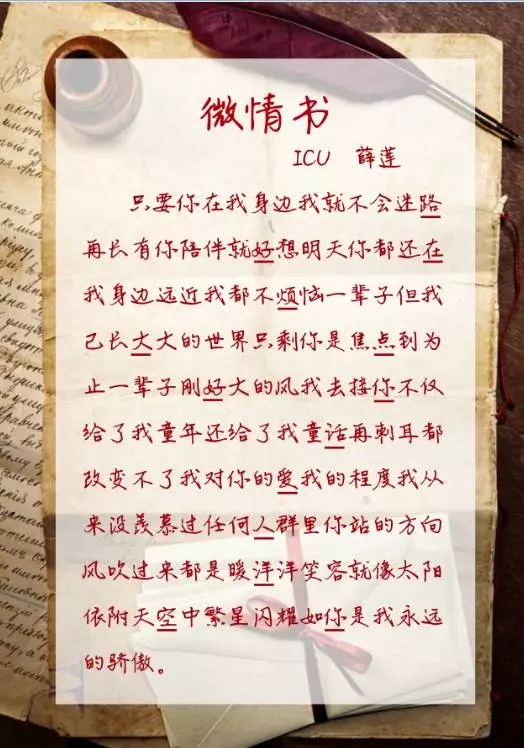 微情书
ICU 薛莲
只要你在我身边我就不会迷路
再长有你陪伴就好想明天你都还在
我身边远近我都不烦恼一辈子但我
己长大大的世界只剩你是焦点到为
止一辈子刚好大的风我去接你不仅
给了我童年还给了我童话再刺耳都
改变不了我对你的爱我的程度我从
来没羡慕过任何人群里你站的方向
风吹过来都是暖洋洋笑容就像太阳
依附天空中繁星闪耀如你是我永远
的骄傲。